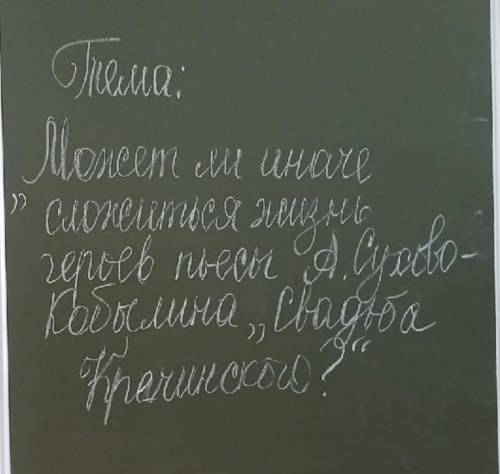 Тема:
Может ли иначе
„ сложиться жизнь
героев пьесы А. Сухово-
Кобылина „Свадьба
Кречинского?“